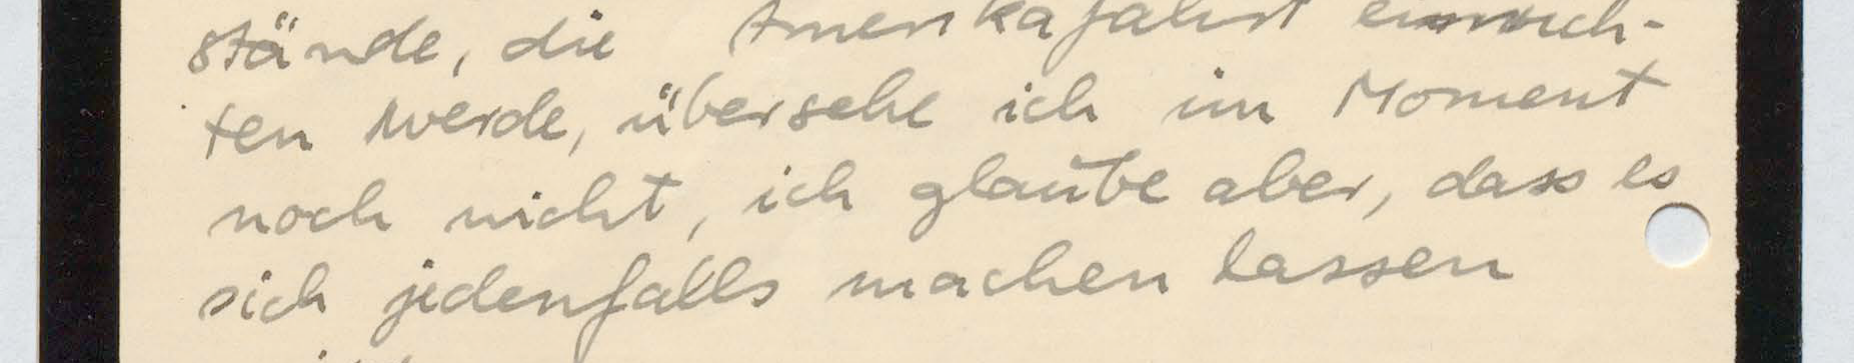 stände, die Amerikafahrt einrich-
ten werde, übersehe ich im Moment
noch nicht, ich glaube aber, dass es
sich jedenfalls machen lassen